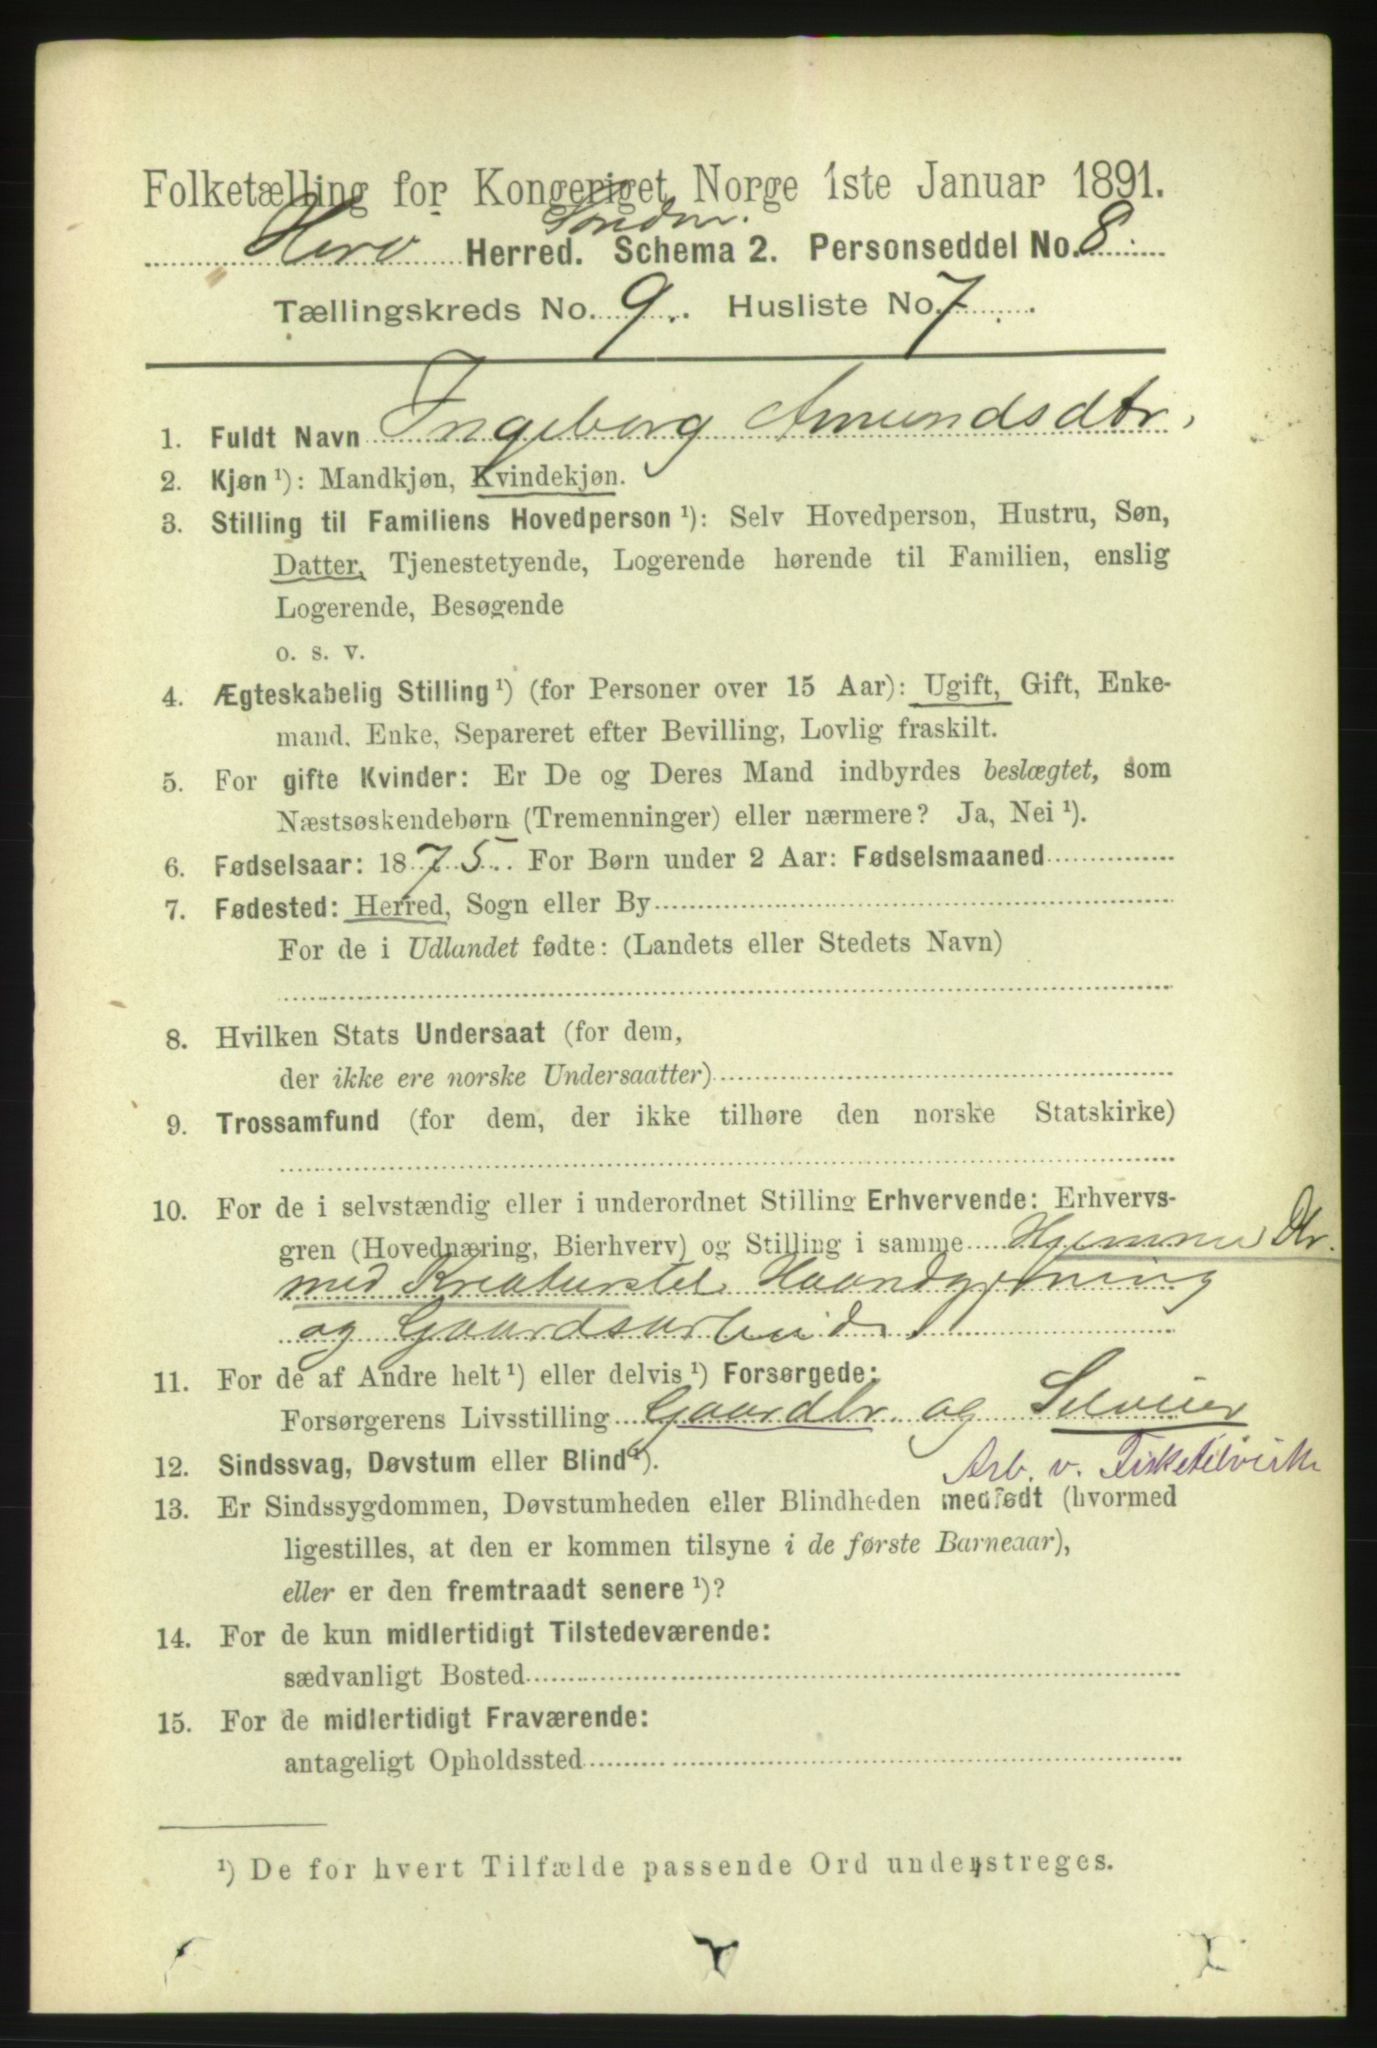 Folketælling for Kongeriget Norge 1ste Januar 1891.
Søndm.
Herø Herred. Schema 2. Personseddel No. 8.
Tællingskreds No. 9. Husliste No. 7.
1. Fuldt Navn Ingeborg Amundsdtr,
2. Kjøn ¹): Mandkjøn, Kvindekjøn.
3. Stilling til Familiens Hovedperson ¹): Selv Hovedperson, Hustru, Søn,
Datter, Tjenestetyende, Logerende hørende til Familien, enslig
Logerende, Besøgende
o. s. v.
4. Ægteskabelig Stilling ¹) (for Personer over 15 Aar): Ugift, Gift, Enke-
mand, Enke, Separeret efter Bevilling, Lovlig fraskilt.
5. For gifte Kvinder: Er De og Deres Mand indbyrdes beslægtet, som
Næstsøskendebørn (Tremenninger) eller nærmere? Ja, Nei ¹).
6. Fødselsaar: 1875. For Børn under 2 Aar: Fødselsmaaned
7. Fødested: Herred, Sogn eller By
For de i Udlandet fødte: (Landets eller Stedets Navn)
8. Hvilken Stats Undersaat (for dem,
der ikke ere norske Undersaatter)
9. Trossamfund (for dem, der ikke tilhøre den norske Statskirke)
10. For de i selvstændig eller i underordnet Stilling Erhvervende: Erhvervs-
gren (Hovednæring, Bierhverv) og Stilling i samme Hjemme
med Kreaturstel Haandgjerning
og Gaardsarbeide
11. For de af Andre helt ¹) eller delvis ¹) Forsørgede:
Forsørgerens Livsstilling Gaardbr. og Selveier
12. Sindssvag, Døvstum eller Blind ¹). Arb. v. Fisketilvirk
13. Er Sindssygdommen, Døvstumheden eller Blindheden medfødt (hvormed
ligestilles, at den er kommen tilsyne i de første Barneaar),
eller er den fremtraadt senere ¹)?
14. For de kun midlertidigt Tilstedeværende:
sædvanligt Bosted
15. For de midlertidigt Fraværende:
antageligt Opholdssted
¹) De for hvert Tilfælde passende Ord understreges.